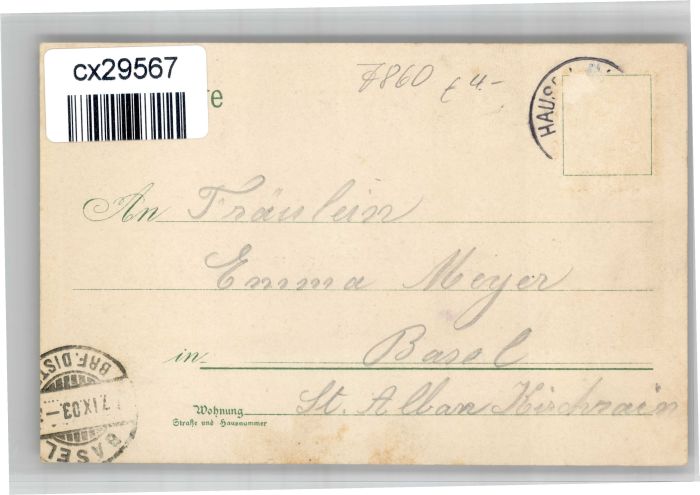 cx29567
7860 £4.-
te
HAUS
An Fräulein
Emma Meyer
in Basel
Wohnung St. Alban Kirchrain
Straße und Hausnummer
BRF. DIST
7.IX.03.
BASEL